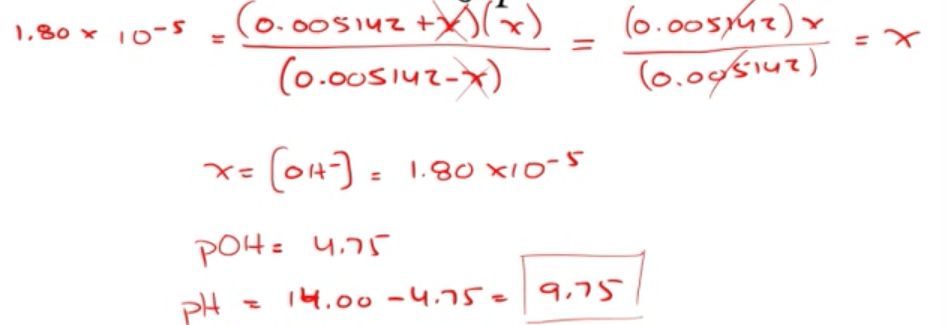 1.80 × 10⁻⁵ = (0.005142 + x)(x) / (0.005142 - x) = (0.005142) x / (0.005142) = x
x = [OH⁻] = 1.80 × 10⁻⁵
pOH = 4.75
pH = 14.00 - 4.75 = 9.75